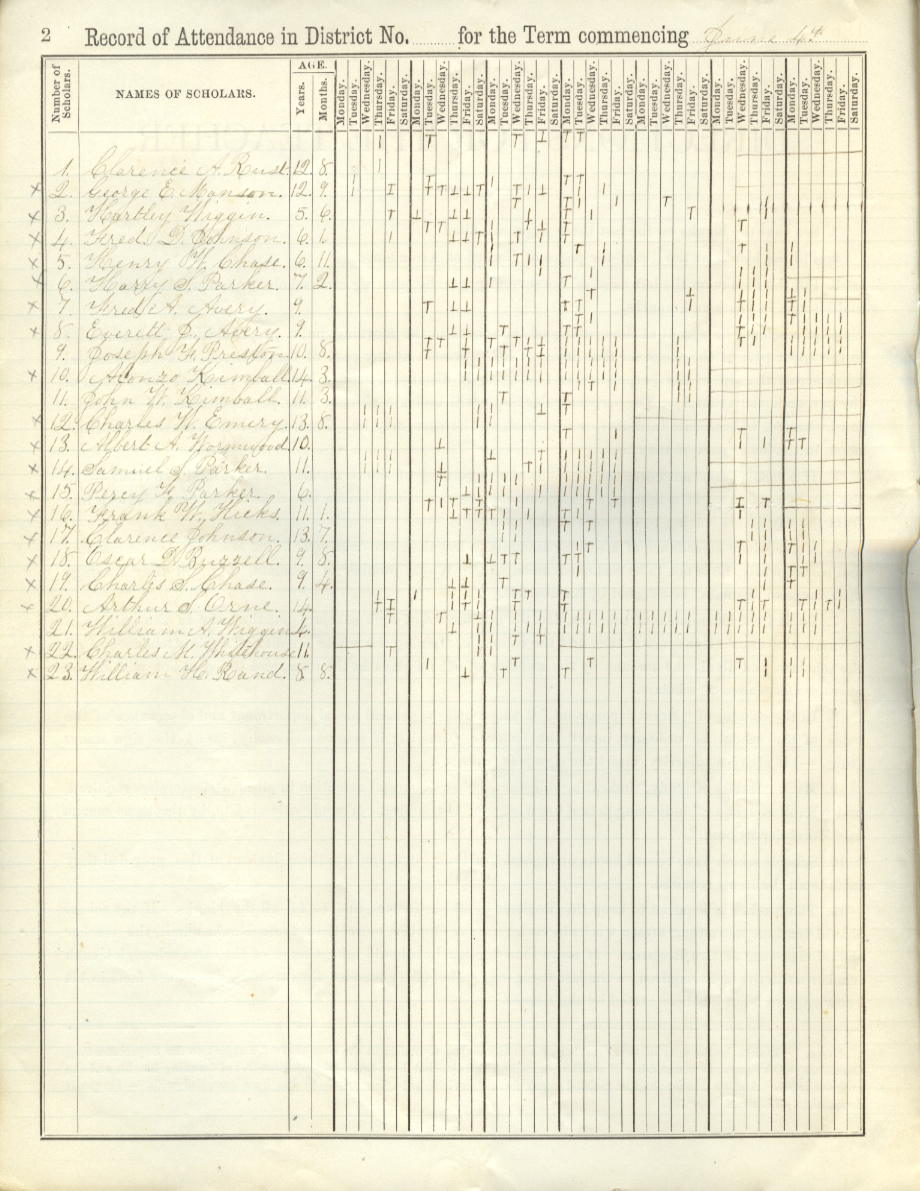 2 Record of Attendance in District No. ........ for the Term commencing June 4th
Number of Scholars. NAMES OF SCHOLARS. AGE. Years. Months. Monday. Tuesday. Wednesday. Thursday. Friday. Saturday. Monday. Tuesday. Wednesday. Thursday. Friday. Saturday. Monday. Tuesday. Wednesday. Thursday. Friday. Saturday. Monday. Tuesday. Wednesday. Thursday. Friday. Saturday. Monday. Tuesday. Wednesday. Thursday. Friday. Saturday. Monday. Tuesday. Wednesday. Thursday. Friday. Saturday. Monday. Tuesday. Wednesday. Thursday. Friday. Saturday.
1. Clarence A. Rust. 12. 8.
x 2. George E. Manson. 12. 9.
x 3. Hartley Wiggin. 5. 6.
x 4. Fred. D. Johnson. 6. 1
x 5. Henry W. Chase. 6. 11
x 6. Harry S. Parker. 7. 2.
x 7. Fred. A. Avery. 9.
x 8. Everett D. Avery. 9.
9. Joseph H. Preston. 10. 8.
x 10. Alonzo Kimball. 14. 3.
11. John W. Kimball. 11. 3.
x 12. Charles W. Emery. 13. 8.
x 13. Albert A. Wormwood. 10.
x 14. Samuel S. Parker. 11.
x 15. Percy H. Parker. 6.
x 16. Frank W. Hicks. 11. 1.
x 17. Clarence Johnson. 13. 7.
x 18. Oscar D. Buzzell. 9. 8.
x 19. Charles S. Chase. 9. 4.
x 20. Arthur S. Orne. 14.
21. William A. Wiggin 4.
x 22. Charles M. Whitehouse 11.
x 23. William H. Rand. 8. 8.